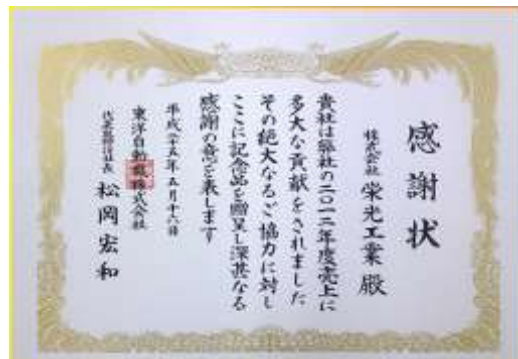 感謝状
株式会社 栄光工業 殿
貴社は弊社の二〇一二年度売上に
多大な貢献をされました
その絶大なるご協力に対し
ここに記念品を贈呈し深甚なる
感謝の意を表します
平成二十五年五月十六日
東洋自動機株式会社
代表取締役社長 松岡宏和